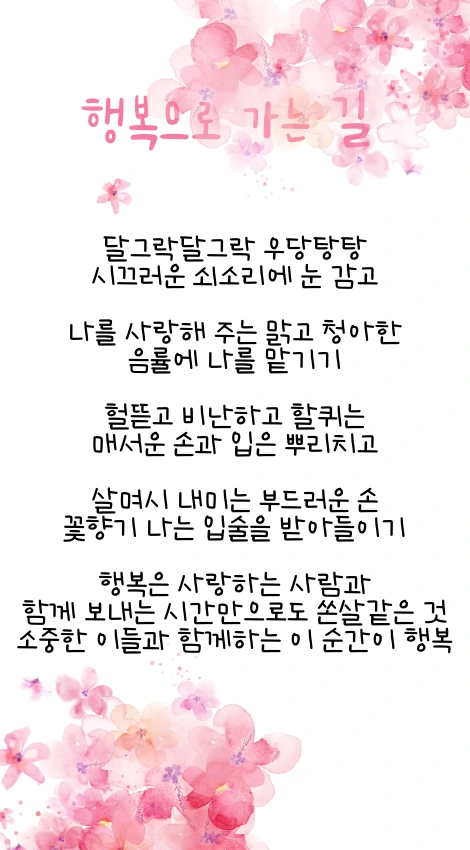 행복으로 가는 길
달그락달그락 우당탕탕
시끄러운 쇠소리에 눈 감고
나를 사랑해 주는 맑고 청아한
음률에 나를 맡기기
헐뜯고 비난하고 할퀴는
매서운 손과 입은 뿌리치고
살며시 내미는 부드러운 손
꽃향기 나는 입술을 받아들이기
행복은 사랑하는 사람과
함께 보내는 시간만으로도 쏜살같은 것
소중한 이들과 함께하는 이 순간이 행복